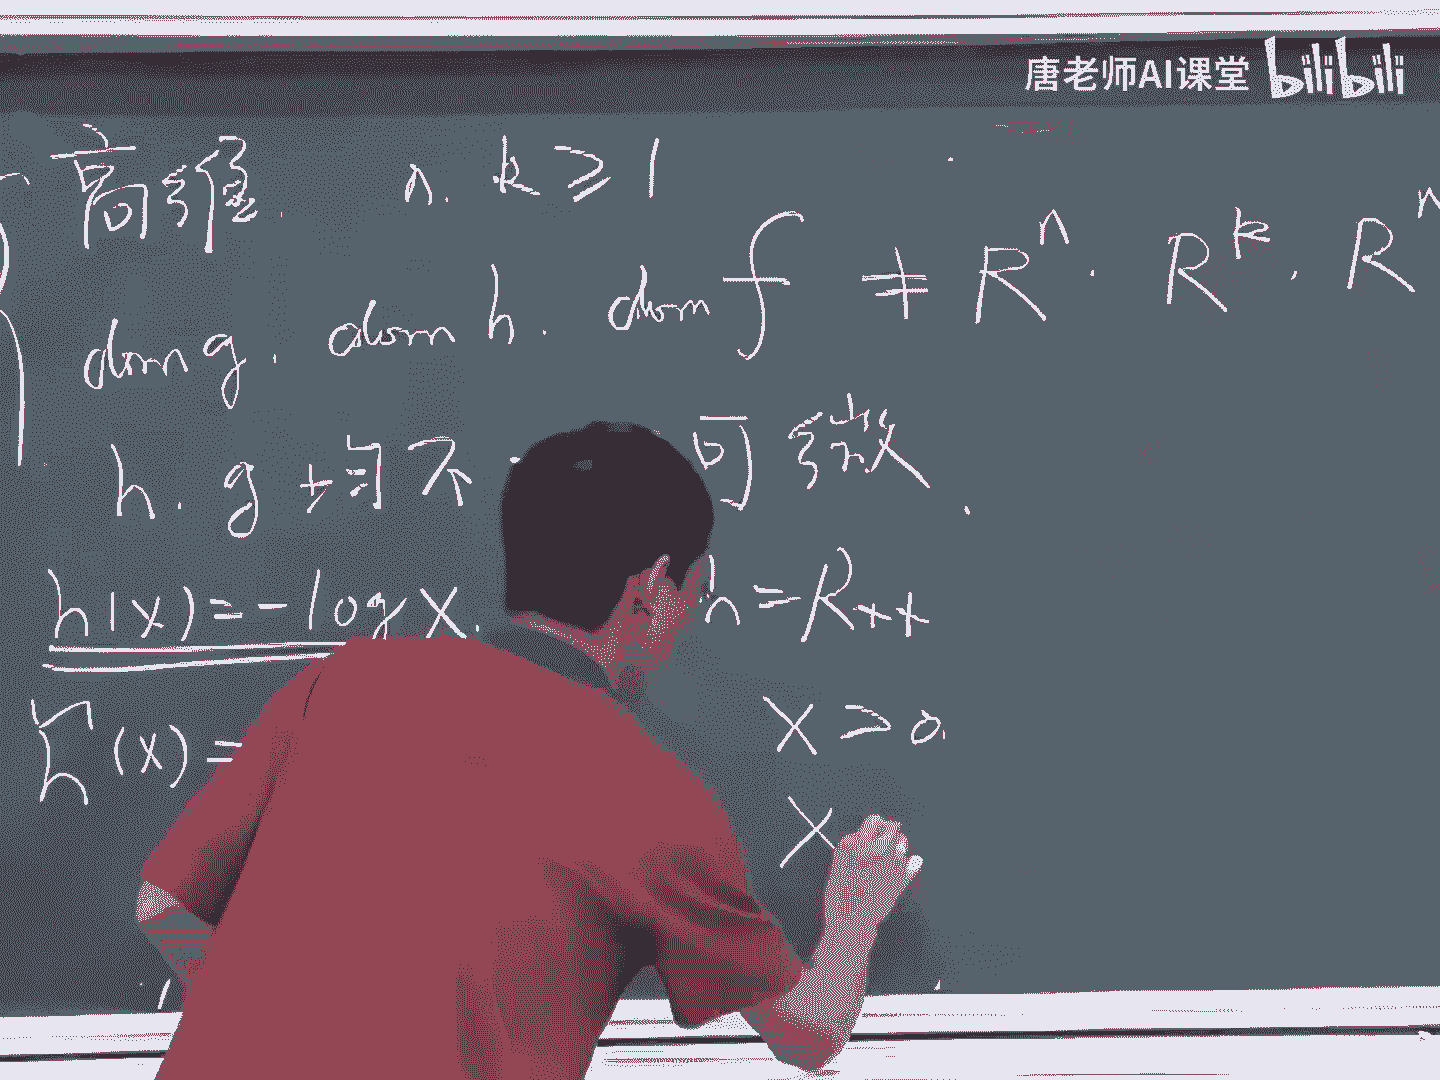 唐老师AI课堂 bilibili
高维. n. k ≥ 1
dom g. dom h. dom f ≠ Rⁿ. Rᵏ. Rⁿ
h. g 均不 可微.
h(x) = -log x. h = R₊₊
h̃(x) = x > 0.
x